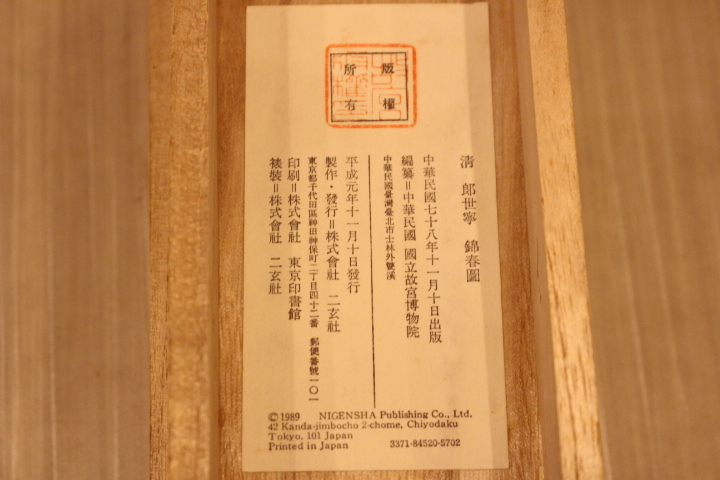 版權
所有
清 郎世寧 錦春圖
中華民國七十八年十一月十日出版
編纂＝中華民國 國立故宮博物院
中華民國臺灣臺北市士林外雙溪
平成元年十一月十日發行
製作・發行＝株式會社 二玄社
東京都千代田區神田神保町二丁目四十二番 郵便番號一〇一
印刷＝株式會社 東京印書館
裱裝＝株式會社 二玄社
© 1989 NIGENSHA Publishing Co., Ltd.
42 Kanda-jimbocho 2-chome, Chiyodaku
Tokyo, 101 Japan
Printed in Japan 3371-84520-5702